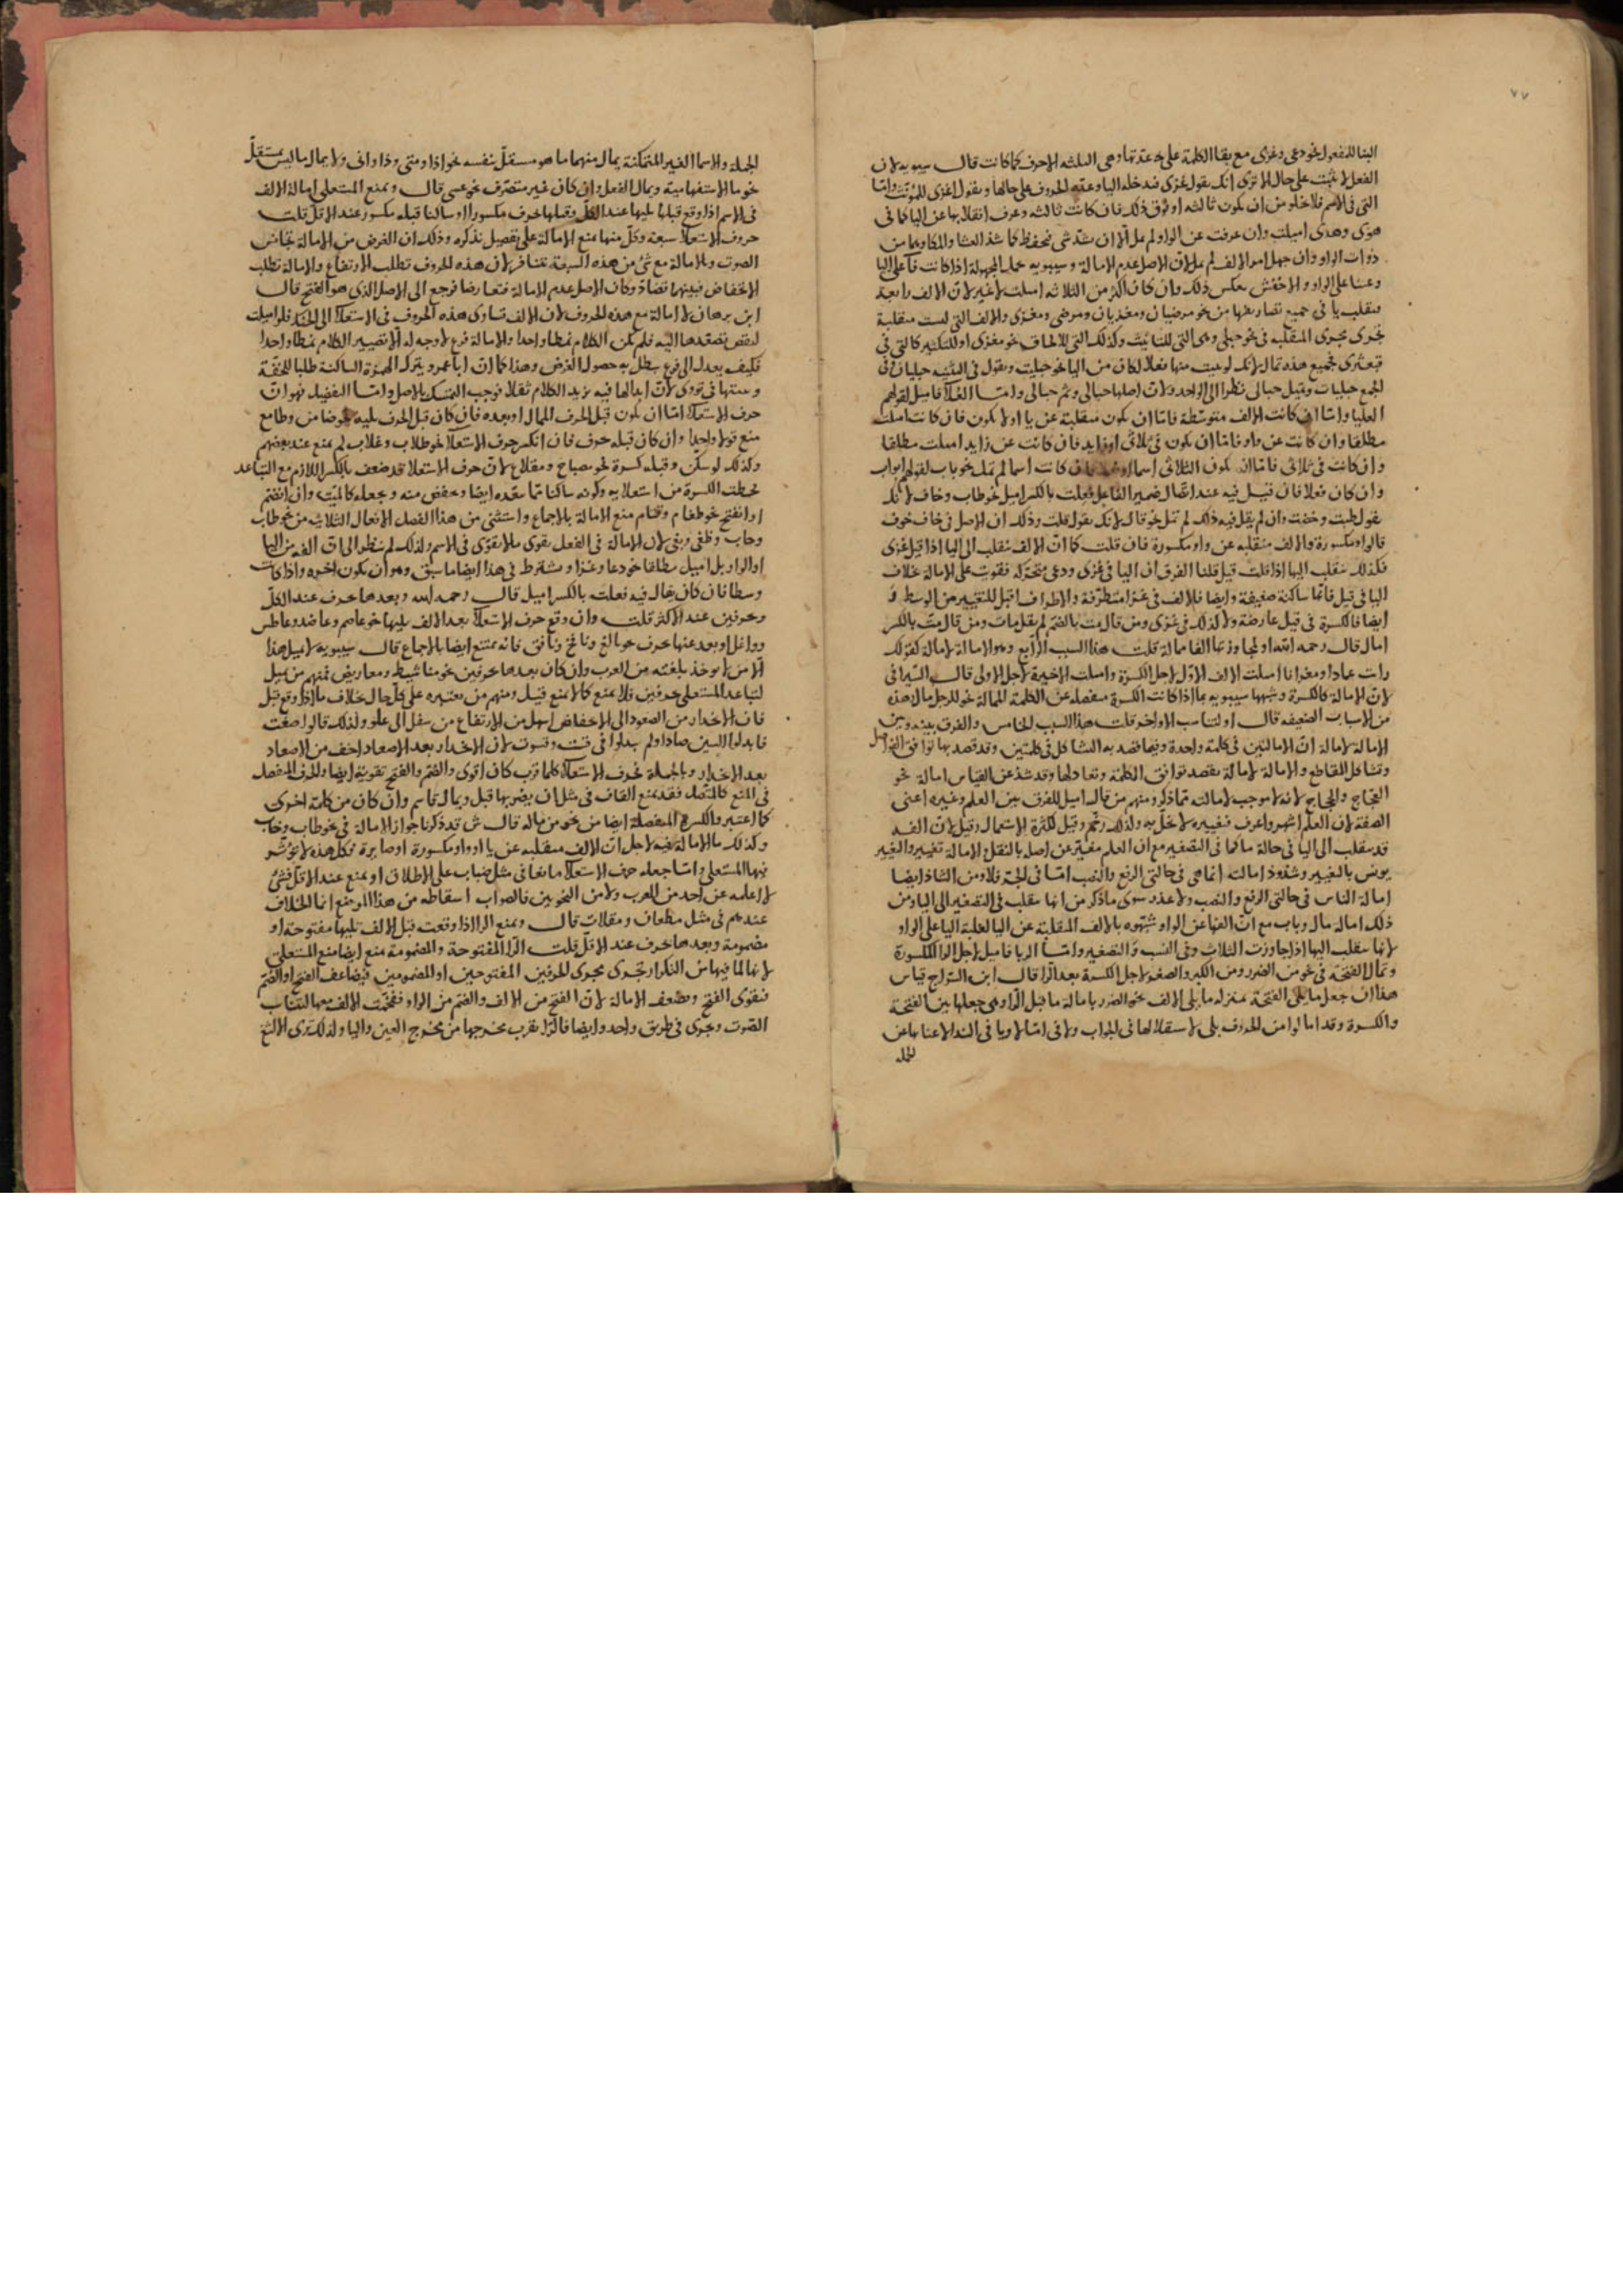 ٧٧
البنا للمفعول نحو دعى وغزى مع بقا الكلمة على عدتها وهى الثلثه الاحرف كما كانت قال سيبويه لان
الفعل لا يثبت على حال الا ترى انك تقول غزى فتدخله اليا وعدة الحروف على حالها وتقول اغزى للمؤنث واما
التى فى الاسم فلا يخلو من ان يكون ثالثه او فوق ذلك فان كانت ثالثه وعرف انقلابها عن اليا كما فى
هوى وهدى اميلت وان عرفت عن الواو لم تمل الا ان يشذ شى فيحفظ كما شذ العشا والمكا وهما من
ذوات الواو وان جهل امر الالف لم تمل لان الاصل عدم الامالة وسيبويه حمل المجهولة اذا كانت على اليا
وعينا على الواو والاخفش بعكس ذلك وان كان اكثر من الثلاثه اميلت لا غير لان الالف رابعة
تنقلب يا فى جميع تصاريفها من نحو مرضيان ومغزيان ومرضى ومغزى والالف التى ليست منقلبة
تجرى مجرى المنقلبه فى نحو حبلى وهى التى للتانيث وكذلك التى للالحاق نحو مغزى او للتكثير كالتى فى
قبعثرى فجميع هذه تمال لانك لو بنيت منها فعلا لكان من اليا نحو حبليت وتقول فى التثنيه حبليان وفى
الجمع حبليات وقيل حبالى نظرا الى الواحد ولان اصلها حبالى وثم حبالى واما العلا فاميل لقولهم
العليا واما ان كانت الالف متوسطة فاما ان يكون منقلبة عن يا او لا يكون فان كانت اميلت
مطلقا وان كانت عن واو فاما ان يكون فى ثلاثى او زايد فان كانت عن زايد اميلت مطلقا
وان كانت فى ثلاثى فاما ان يكون الثلاثى اسما او فعلا فان كانت اسما لم تمل نحو باب لقولهم ابواب
وان كان فعلا فان قيل فيه عند اتصال ضمير الفاعل فعلت بالكسر اميل نحو طاب وخاف لانك
تقول طبت وخفت وان لم يقل فيه ذلك لم تمل نحو قال لانك تقول قلت وذلك ان الاصل فى خاف خوف
فالواو مكسورة والالف منقلبه عن واو مكسورة فان قلت كما ان الالف تنقلب الى اليا اذا قيل غزى
فكذلك تنقلب اليها اذا قلت قيل قلنا الفرق ان اليا فى غزى ودعى متحركه فقويت على الامالة بخلاف
اليا فى قيل فانها ساكنة ضعيفة وايضا فالالف فى غزا متطرفة والاطراف اقبل للتغيير من الوسط و
ايضا فالكسرة فى قيل عارضة ولا كذلك فى غزى ومن قال مت بالضم لم يقل مات ومن قال مت بالكسر
امال قال رحمه الله او لمجاوزتها الفا ممالة قلت هذا السبب الرابع وهو الامالة لامالة كقولك
رايت عمادا ومغزانا اميلت الالف الاول لاجل الكسرة واميلت الاخيرة لاجل الاولى قال السيرافى
لان الامالة كالكسرة وشبهها سيبويه بما اذا كانت الكسرة منفصله عن الكلمة الممالة نحو للرجل مال وهذه
من الاسباب الضعيفه قال او لتناسب الاواخر قلت هذا السبب الخامس والفرق بينه وبين
الامالة لامالة ان الامالتين فى كلمة واحدة وفيما قصد به التشاكل فى كلمتين وقد قصد بها توافق الفواصل
وتشاكل المقاطع والامالة لامالة يقصد توافق الكلمة وتعادلها وقد شذ عن القياس امالة نحو
العجاج والحجاج لانه لا موجب لامالته مما ذكر ومنهم من قال اميل للفرق بين العلم وغيره اعنى
الصفة لان العلم اشهر واعرف فتغييره لا يخل به ولذلك رخم وقيل لكثرة الاستعمال وقيل لان الفه
قد تنقلب الى اليا فى حالة ما كما فى التصغير مع ان العلم مغير عن اصله بالنقل والامالة تغيير والتغيير
يونس بالتغيير وشذوذ امالته انما هى فى حالتى الرفع والنصب اما فى الجر فلا ومن الشاذ ايضا
امالة الناس فى حالتى الرفع والنصب ولا عذر سوى ما ذكر من انها تنقلب فى التصغير الى اليا ومن
ذلك امالة مال وباب مع ان الفها عن الواو شبهوه بالالف المنقلبة عن اليا لغلبة اليا على الواو
لانها تنقلب اليها اذا جاوزت الثلاث وفى النسب والتصغير واما الربا فاميل لاجل الرا المكسورة
وتمال الفتحة فى نحو من الضرر ومن الكبر والصغر لاجل الكسرة بعد الرا قال ابن السراج قياس
هذا ان جعل ما يلى الفتحة بمنزله ما يلى الالف نحو الضرر بامالة ما قبل الرا وهى جعلها بين الفتحة
والكسرة وقد امالوا من الحروف بلى لاستقلالها فى الجواب ولا فى اما لا ويا فى الندا لاغنايها عن
الجملة
الجملة والاسما الغير المتمكنة يمال منهما ما هو مستقل بنفسه نحو اذا ومتى وذا وانى ولا يمال ما ليس بمستقل
نحو ما الاستفهامية ويمال الفعل وان كان غير متصرف نحو عسى قال ويمنع المستعلى امالة الالف
فى الاسم اذا وقع قبلها يليها عند الكل وقبلها حرف مكسورا او ساكنا قبله مكسور عند الاقل قلت
حروف الاستعلا سبعة وكل منها يمنع الامالة على تفصيل نذكره وذلك ان الغرض من الامالة تجانس
الصوت وبالامالة مع شى من هذه السبعة تتنافر لان هذه الحروف تطلب الارتفاع والامالة تطلب
الانخفاض فبينهما تضاد وكان الاصل عدم الامالة فتعارضا فرجع الى الاصل الذى هو الفتح قال
ابن برهان لا امالة مع هذه الحروف لان الالف تساوى هذه الحروف فى الاستعلا الى الحنك فلو اميلت
لنقص تصعدها اليه فلم يكن الكلام نمطا واحدا والامالة فرع لا وجه له الا تصيير الكلام نمطا واحدا
فكيف يعدل الى فرع يبطل به حصول الغرض وهذا كما ان ابا عمرو يترك الهمزة الساكنة طلبا للخفة
ويبينها فى تؤوى لان ابدالها فيه يزيد الكلام ثقلا فوجب التمسك بالاصل واما التفصيل فهو ان
حرف الاستعلا اما ان يكون قبل الحرف الممال او بعده فان كان قبل الحرف يليه نحو ضامن وطامع
منع قولا واحدا وان كان قبله حرف فان انكسر حرف الاستعلا نحو طلاب وغلاب لم يمنع عند بعضهم
وكذلك لو سكن وقبله كسرة نحو مصباح ومقلاع لان حرف الاستعلا قد ضعف بالكسر اللازم مع التباعد
فحطت الكسرة من استعلايه وكونه ساكنا مما يبعده ايضا ويخفض منه ويجعله كالميت وان انضم
او انفتح نحو طغام وقتام منع الامالة بالاجماع واستثنى من هذا الفصل الافعال الثلاثيه من نحو طاب
وخاب وطغى وبغى لان الامالة فى الفعل تقوى ما لا تقوى فى الاسم ولذلك لم ينظر الى ان الفه من اليا
او الواو بل اميل مطلقا نحو دعا وغزا ويشترط فى هذا ايضا ما سبق وهو ان يكون اخره واذا كانت
وسطا فان كان يقال فيه فعلت بالكسر اميل قال رحمه الله وبعدها حرف عند الكل
وبحرفين عند الاكثر قلت وان وقع حرف الاستعلا بعد الالف يليها نحو عاصم وعاضد وعاطس
وواغل او بعد عنها بحرف نحو بالغ ونافخ ونافق فانه يمتنع ايضا بالاجماع قال سيبويه لا يميل هذا
الا من لا يوخذ بلغته من العرب وان كان بعدها بحرفين نحو مناشيط ومعاريض فمنهم من يميل
لتباعد المستعلى بحرفين فلا يمنع كما لا يمنع قبل ومنهم من يعتبره على كل حال بخلاف ما اذا وقع قبل
فان الانحدار من الصعود الى الانخفاض اسهل من الارتفاع من سفل الى علو ولذلك قالوا صقت
فابدلوا السين صادا ولم يبدلوا فى قست وقسوت لان الانحدار بعد الاصعاد اخف من الاصعاد
بعد الانحدار وبالجملة فحرف الاستعلا كلما قرب كان اقوى والضم والفتح تقوية ايضا والحرف المنفصل
فى المنع كالمتصل فقد يمنع القاف فى مثل ان يضربها قبل ويمال قاسم وان كان من كلمة اخرى
كما اعتبر والكسرة المنفصلة ايضا من نحو من ماله قال ش قد ذكرنا جواز الامالة فى نحو طاب وخاب
وكذلك ما الامالة فيه لاجل ان الالف منقلبه عن يا او واو مكسورة او صايرة فكل هذه لا يؤثر
فيها المستعلى واما جعله حرف الاستعلا مانعا فى مثل ضباب على الاطلاق او يمنع عند الاقل فشى
لا اعلمه عن احد من العرب ولا من النحويين فالصواب اسقاطه من هذا الموضع انما الخلاف
عندهم فى مثل مطعان ومقلات قال ويمنع الرا اذا وقعت قبل الالف تليها مفتوحة او
مضمومة وبعدها حرف عند الاقل قلت الرا المفتوحة والمضمومة يمنع ايضا منع المستعلى
لانها لما فيها من التكرار تجرى مجرى الحرفين المفتوحين او المضمومين فيضاعف الفتح او الضم
فيقوى الفتح ويضعف الامالة لان الفتح من الالف والضم من الواو ففخمت الالف معها لتناسب
الصوت ويجرى فى طريق واحد وايضا فالرا يقرب مخرجها من مخرج العين واليا ولذلك ترى الالثغ